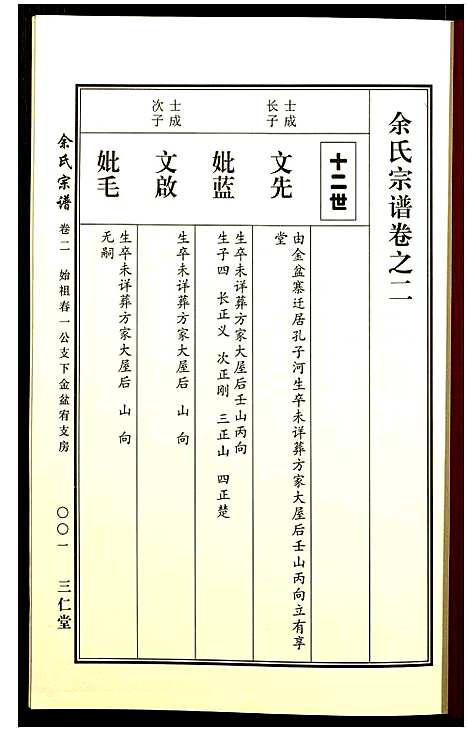 余氏宗谱卷之二
十二世
士成
长子
文先
由金盆寨迁居孔子河生卒未详葬方家大屋后壬山丙向立有享
堂
妣蓝
生卒未详葬方家大屋后壬山丙向
生子四 长正义 次正刚 三正山 四正楚
士成
次子
文啟
生卒未详葬方家大屋后 山 向
妣毛
生卒未详葬方家大屋后 山 向
无嗣
余氏宗谱 卷二 始祖春一公支下金盆宥支房 〇〇一 三仁堂